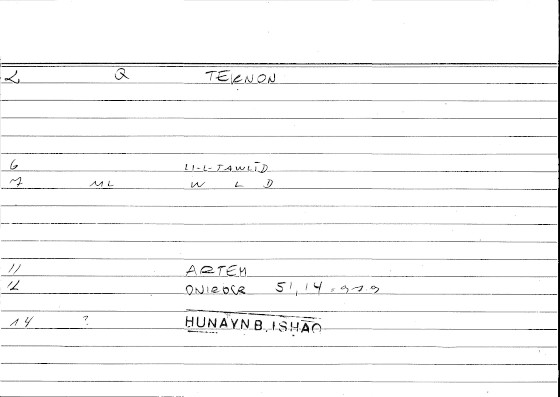 2 Q TEKNON
6 LI-L-TAWLĪD
7 ML W L D
11 ARTEM
12 ONIROCR 51,14
14 ? HUNAYN B. ISHAQ